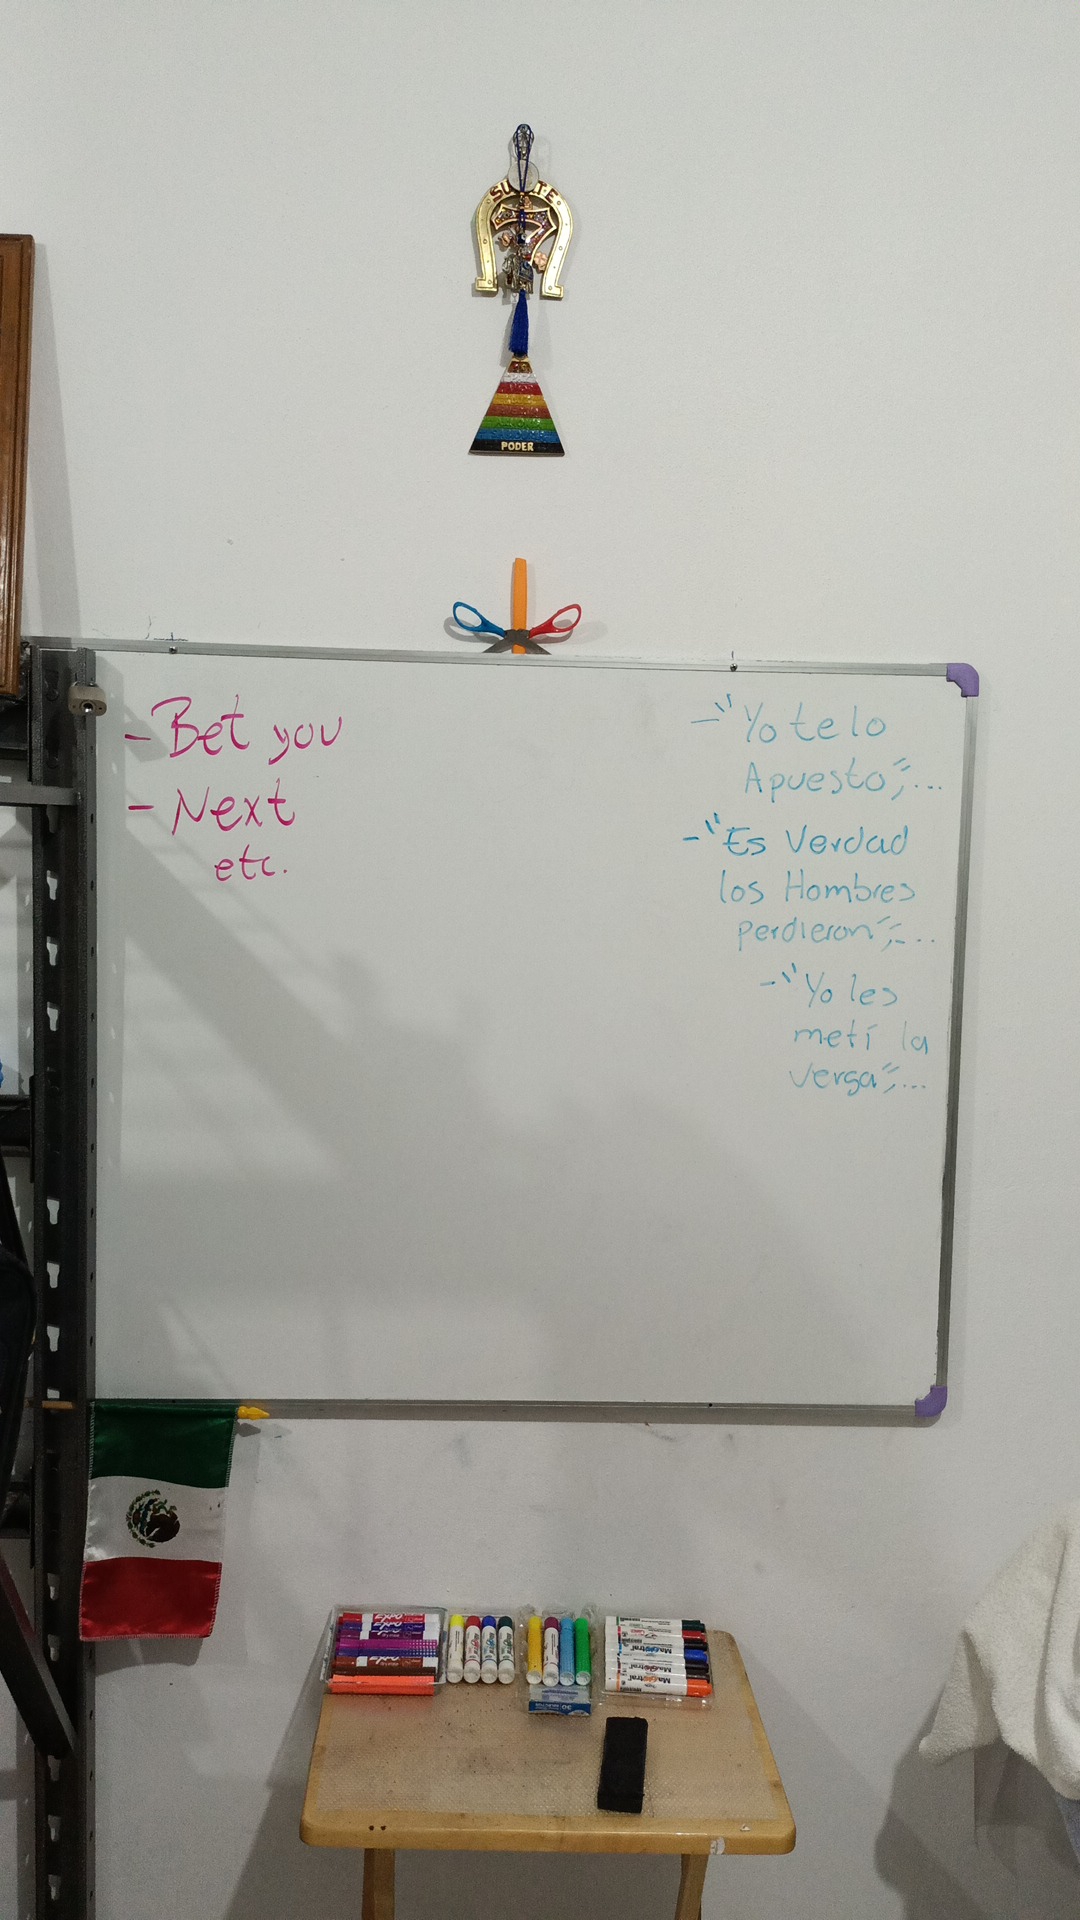 PODER
- Bet you
- Next
etc.
- "Yo te lo
Apuesto";...
- "Es Verdad
los Hombres
perdieron";...
- "Yo les
metí la
verga";...